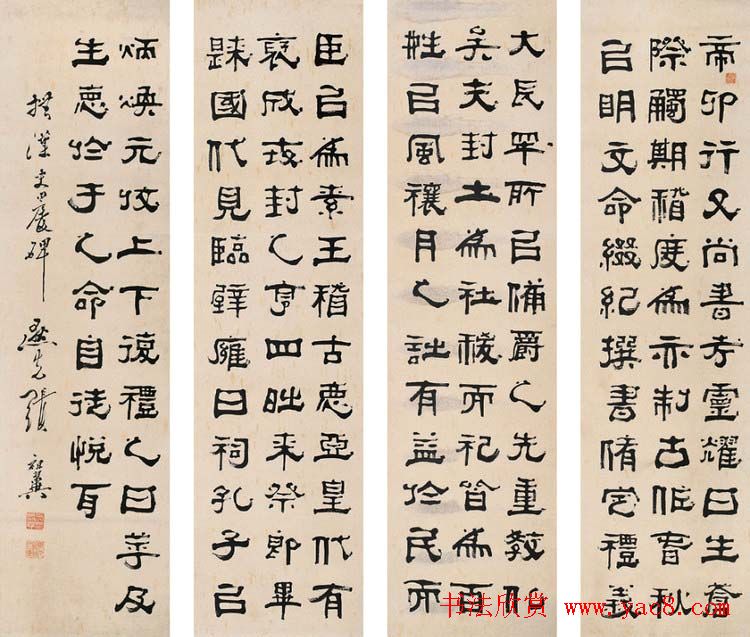 帝卯行又尚書考靈燿曰生蒼
際觸期稽度為赤制古作春秋
以明文命綴紀撰書脩定禮義
大長牢所以備爵之先重教化
矣夫封土為社稷而祀皆為百
姓以風穰月之有益於民而
臣以為素王稽古德亞皇代有
褒成封之享四時來祭即畢
歸國代見臨辟廱日祠孔子以
炳煥元汶上下復禮之曰華及
生德於于之命自徒悅耳
漢史晨碑 逖先張祖翼
书法欣赏 www.yac8.com